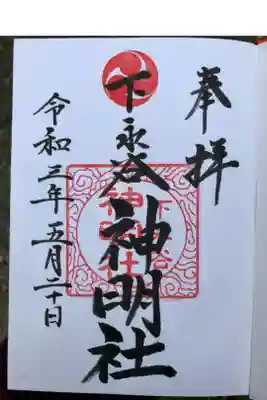 奉拝
下永谷
神明社
下永谷
神明社
令和三年五月二十日